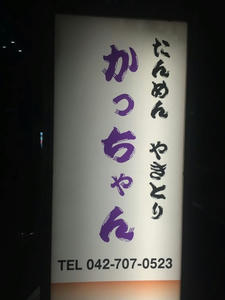 たんめん　やきとり
かっちゃん
TEL 042-707-0523